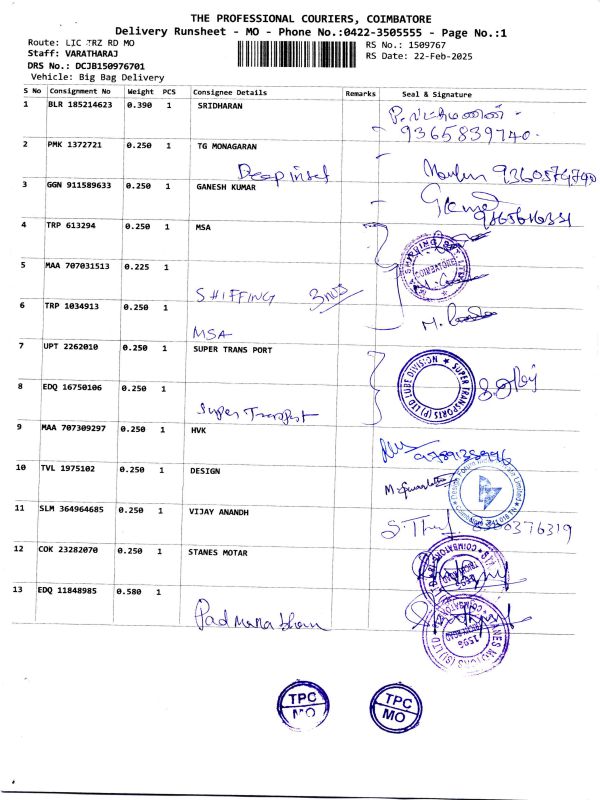 THE PROFESSIONAL COURIERS, COIMBATORE
Delivery Runsheet - MO - Phone No.:0422-3505555 - Page No.:1
Route: LIC TRZ RD MO
RS No.: 1509767
Staff: VARATHARAJ
RS Date: 22-Feb-2025
DRS No.: DCJB150976701
Vehicle: Big Bag Delivery
S No Consignment No Weight PCS Consignee Details Remarks Seal & Signature
1 BLR 185214623 0.390 1 SRIDHARAN
9365839740.
2 PMK 1372721 0.250 1 TG MONAGARAN
Deep inset
9360574740
3 GGN 911589633 0.250 1 GANESH KUMAR
4 TRP 613294 0.250 1 MSA
COIMBATORE
5 MAA 707031513 0.225 1
SHIFFING 3 nos
6 TRP 1034913 0.250 1
MSA
7 UPT 2262010 0.250 1 SUPER TRANS PORT
SUPER TRANSPORTS (P) LTD LUBE DIVISION
8 EDQ 16750106 0.250 1
Super Transport
9 MAA 707309297 0.250 1 HVK
10 TVL 1975102 0.250 1 DESIGN
11 SLM 364964685 0.250 1 VIJAY ANANDH
12 COK 23282070 0.250 1 STANES MOTAR
13 EDQ 11848985 0.580 1
Padmanabhan
TPC
MO
TPC
MO